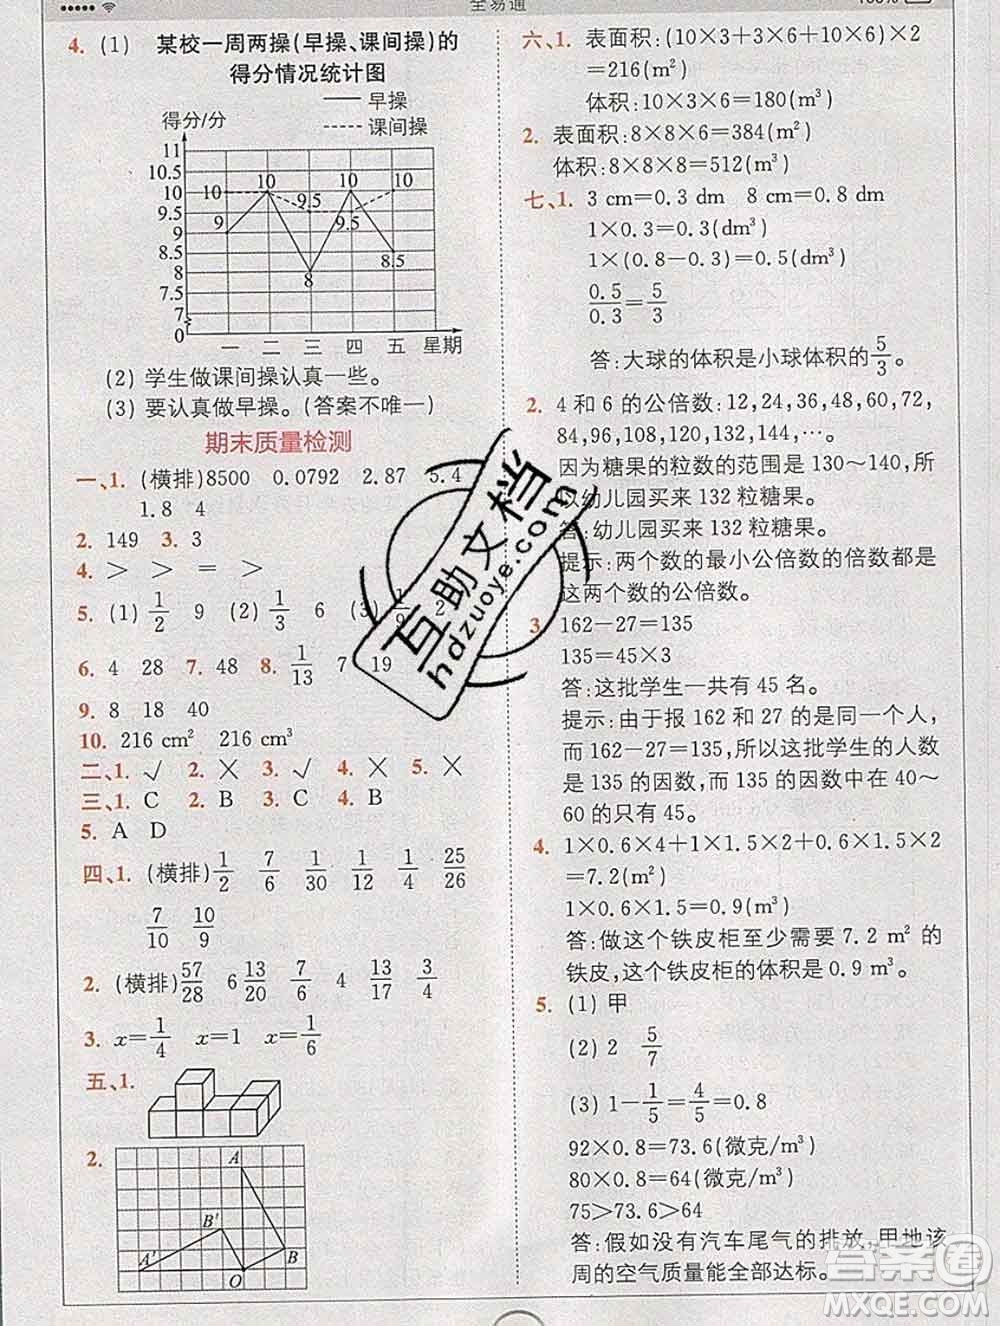 全易通
100%
4. (1) 某校一周两操(早操、课间操)的
得分情况统计图
早操
课间操
得分/分
11
10.5
10
9.5
9
8.5
8
7.5
7
0
10
9
10
9.5
8
10
9.5
10
8.5
一 二 三 四 五 星期
(2) 学生做课间操认真一些。
(3) 要认真做早操。(答案不唯一)
期末质量检测
一、1. (横排)8500 0.0792 2.87 5.4
1.8 4
2. 149 3. 3
4. > > = >
5. (1) 1/2 9 (2) 1/3 6 (3) 1/9 2
6. 4 28 7. 48 8. 1/13 7 19
9. 8 18 40
10. 216 cm² 216 cm³
二、1. √ 2. × 3. √ 4. × 5. ×
三、1. C 2. B 3. C 4. B
5. A D
四、1. (横排) 1/2 7/6 1/30 1/12 1/4 25/26
7/10 10/9
2. (横排) 57/28 6 13/20 7/6 4 13/16 3/4
3. x=1/4 x=1 x=1/6
五、1.
2.
A
B'
A'
B
O
六、1. 表面积:(10×3+3×6+10×6)×2
=216(m²)
体积:10×3×6=180(m³)
2. 表面积:8×8×6=384(m²)
体积:8×8×8=512(m³)
七、1. 3 cm=0.3 dm 8 cm=0.8 dm
1×0.3=0.3(dm³)
1×(0.8-0.3)=0.5(dm³)
0.5/0.3=5/3
答:大球的体积是小球体积的5/3。
2. 4 和 6 的公倍数:12,24,36,48,60,72,
84,96,108,120,132,144,…。
因为糖果的粒数的范围是 130~140,所
以幼儿园买来 132 粒糖果。
答:幼儿园买来 132 粒糖果。
提示:两个数的最小公倍数的倍数都是
这两个数的公倍数。
3. 162-27=135
135=45×3
答:这批学生一共有 45 名。
提示:由于报 162 和 27 的是同一个人,
而 162-27=135,所以这批学生的人数
是 135 的因数,而 135 的因数中在 40~
60 的只有 45。
4. 1×0.6×4+1×1.5×2+0.6×1.5×2
=7.2(m²)
1×0.6×1.5=0.9(m³)
答:做这个铁皮柜至少需要 7.2 m² 的
铁皮,这个铁皮柜的体积是 0.9 m³。
5. (1) 甲
(2) 2 5/7
(3) 1-1/5=4/5=0.8
92×0.8=73.6(微克/m³)
80×0.8=64(微克/m³)
75>73.6>64
答:假如没有汽车尾气的排放,甲地该
周的空气质量能全部达标。
互助文档
hdzuoye.com
答案圈
MXQE.COM